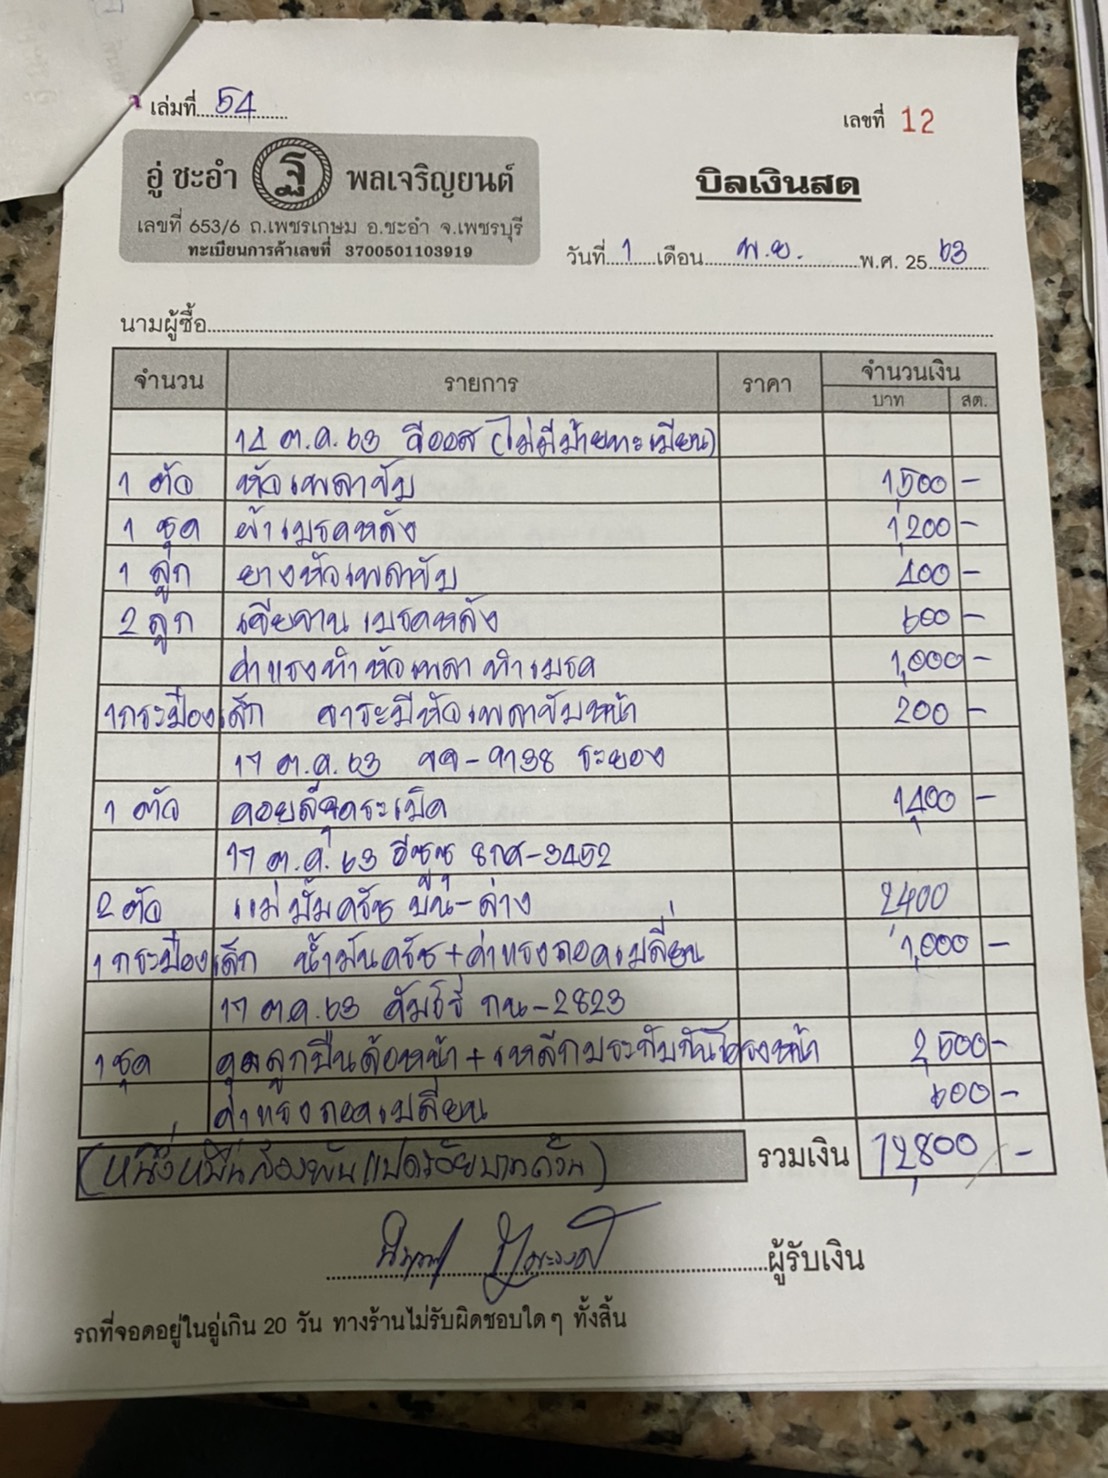 เล่มที่ 54
เลขที่ 12
อู่ ชะอำ ฐ พลเจริญยนต์
บิลเงินสด
เลขที่ 653/6 ถ.เพชรเกษม อ.ชะอำ จ.เพชรบุรี
ทะเบียนการค้าเลขที่ 3700501103919
วันที่ 1 เดือน พ.ย. พ.ศ. 25 63
นามผู้ซื้อ
จำนวน รายการ ราคา จำนวนเงิน
บาท สต.
14 ต.ค. 63 วีออส (ไม่มีป้ายทะเบียน)
1 ตัว หัวเพลาขับ 1,500 -
1 ชุด ผ้าเบรคหลัง 1,200 -
1 ลูก ยางหัวเพลาขับ 400 -
2 ลูก เจียจานเบรคหลัง 600 -
ค่าแรงทำหัวเพลา ทำเบรค 1,000 -
1 กระป๋องเล็ก จาระบีหัวเพลาขับหน้า 200 -
17 ต.ค. 63 ระยอง
1 ตัว คอยล์จุดระเบิด 1,400 -
17 ต.ค. 63 อีซูซุ 8กศ-3452
2 ตัว แม่ปั๊มครัช บน-ล่าง 2400
1 กระป๋องเล็ก น้ำมันครัช + ค่าแรงถอดเปลี่ยน 1,000 -
17 ต.ค. 63 คัมรี่ กน-2823
1 ชุด ลูกปืนล้อหน้า + เหล็กประกับกันโครงหน้า 2,500 -
ค่าแรงถอดเปลี่ยน 600 -
(หนึ่งหมื่นสองพันแปดร้อยบาทถ้วน) รวมเงิน 12,800 -
ผู้รับเงิน
รถที่จอดอยู่ในอู่เกิน 20 วัน ทางร้านไม่รับผิดชอบใดๆ ทั้งสิ้น